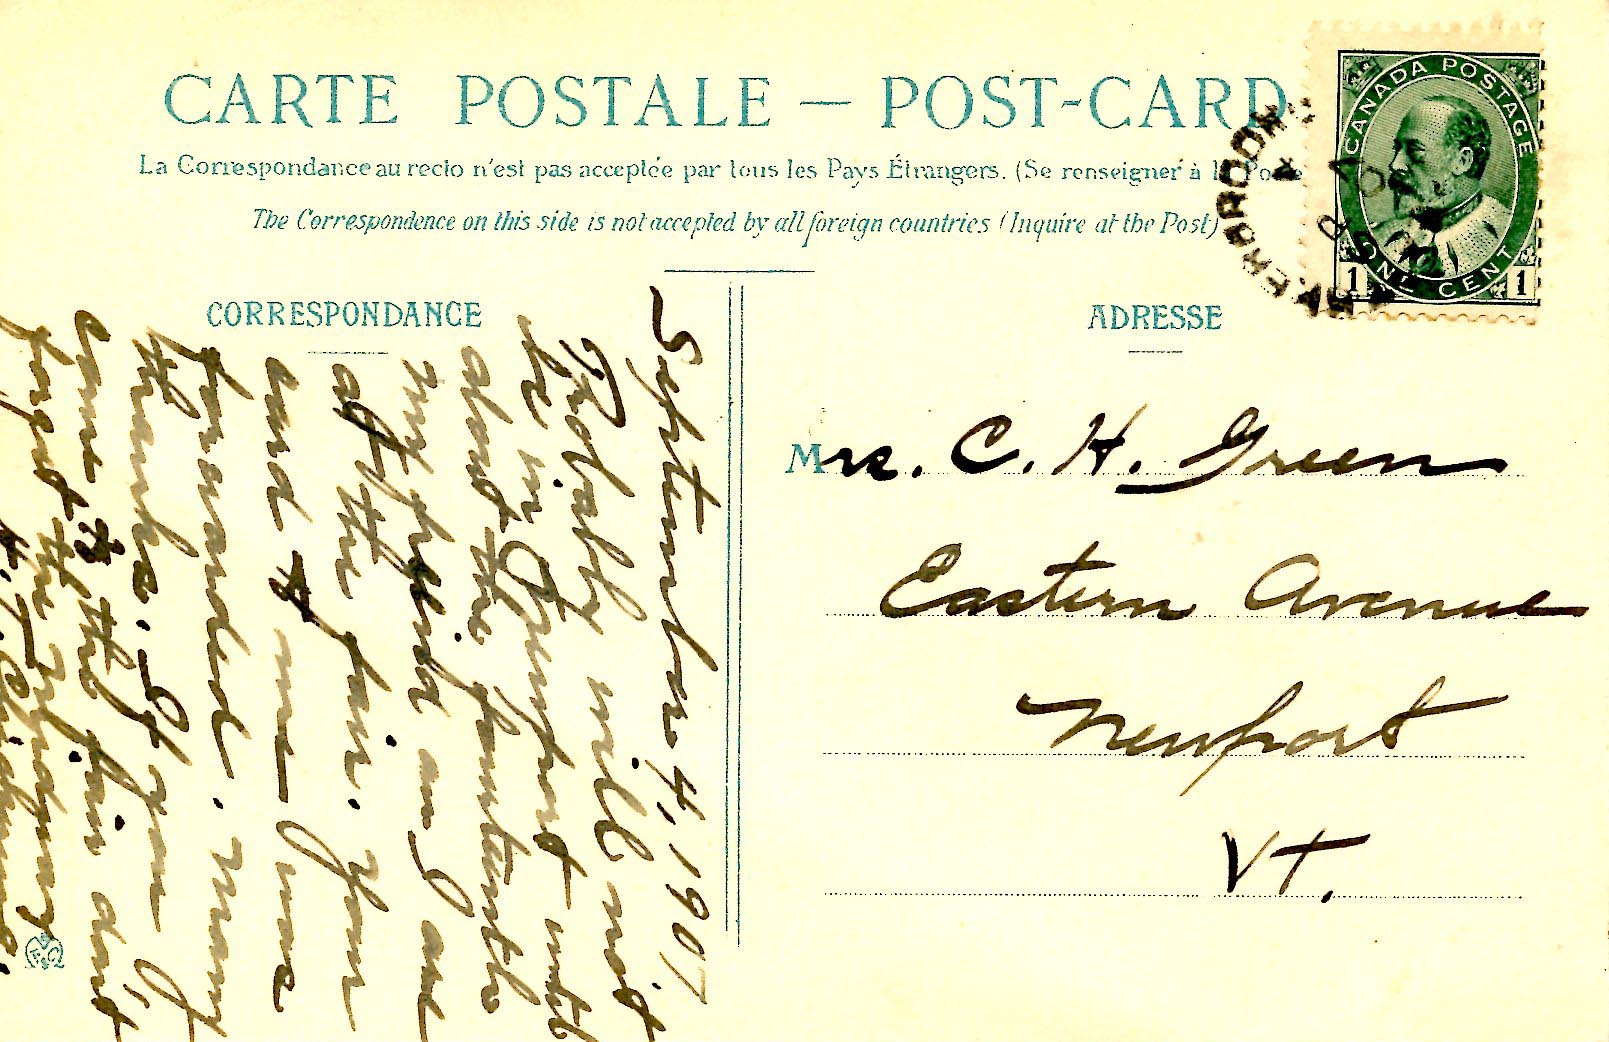 CARTE POSTALE — POST-CARD
La Correspondance au recto n'est pas acceptée par tous les Pays Étrangers. (Se renseigner à la Poste
The Correspondence on this side is not accepted by all foreign countries (Inquire at the Post)
CANADA POSTAGE
ONE CENT
1 1
CORRESPONDANCE
September 4, 1907
Probably will not
be in Newport until
about the fourteenth
my friend as I am
at the fair. Your
card to me was
forwarded. Many
thanks. If you
come to the fair don't
forget the
ADRESSE
Mrs. C. H. Green
Eastern Avenue
Newport
Vt.